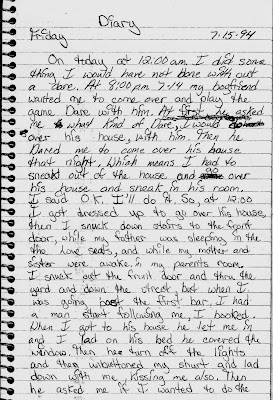 Diary
Friday 7-15-94
On today at 12:00 a.m. I did some
thing I would have not done with out
a dare. At 8:00 p.m. 7-14 my boyfriend
wanted me to come over and play the
game Dare with him. At first I asked
me what Kind of Dare, I would do
over his house, with him. Then he
Dared me to come over his house
that night, Which means I had to
sneak out of the house and over
his house and sneak in his room.
I said O.K. I'll do it. So, at 12:00
I got dressed up to go over his house,
then I snuck down stairs to the front
door, while my father was sleeping in the
the love seats, and while my mother and
sister were awake in my parents room,
I snuck out the fruit door and thru the
yard and down the street, but when I
was going past the first bar. I had
a man start following me, I booked.
When I got to his house he let me in
and I lad on his bed he covered the
window. Then he turn off the lights
and then unbuttoned my shurt and lad
down with me, Kissing me also. Then
he asked me if I wanted to do the